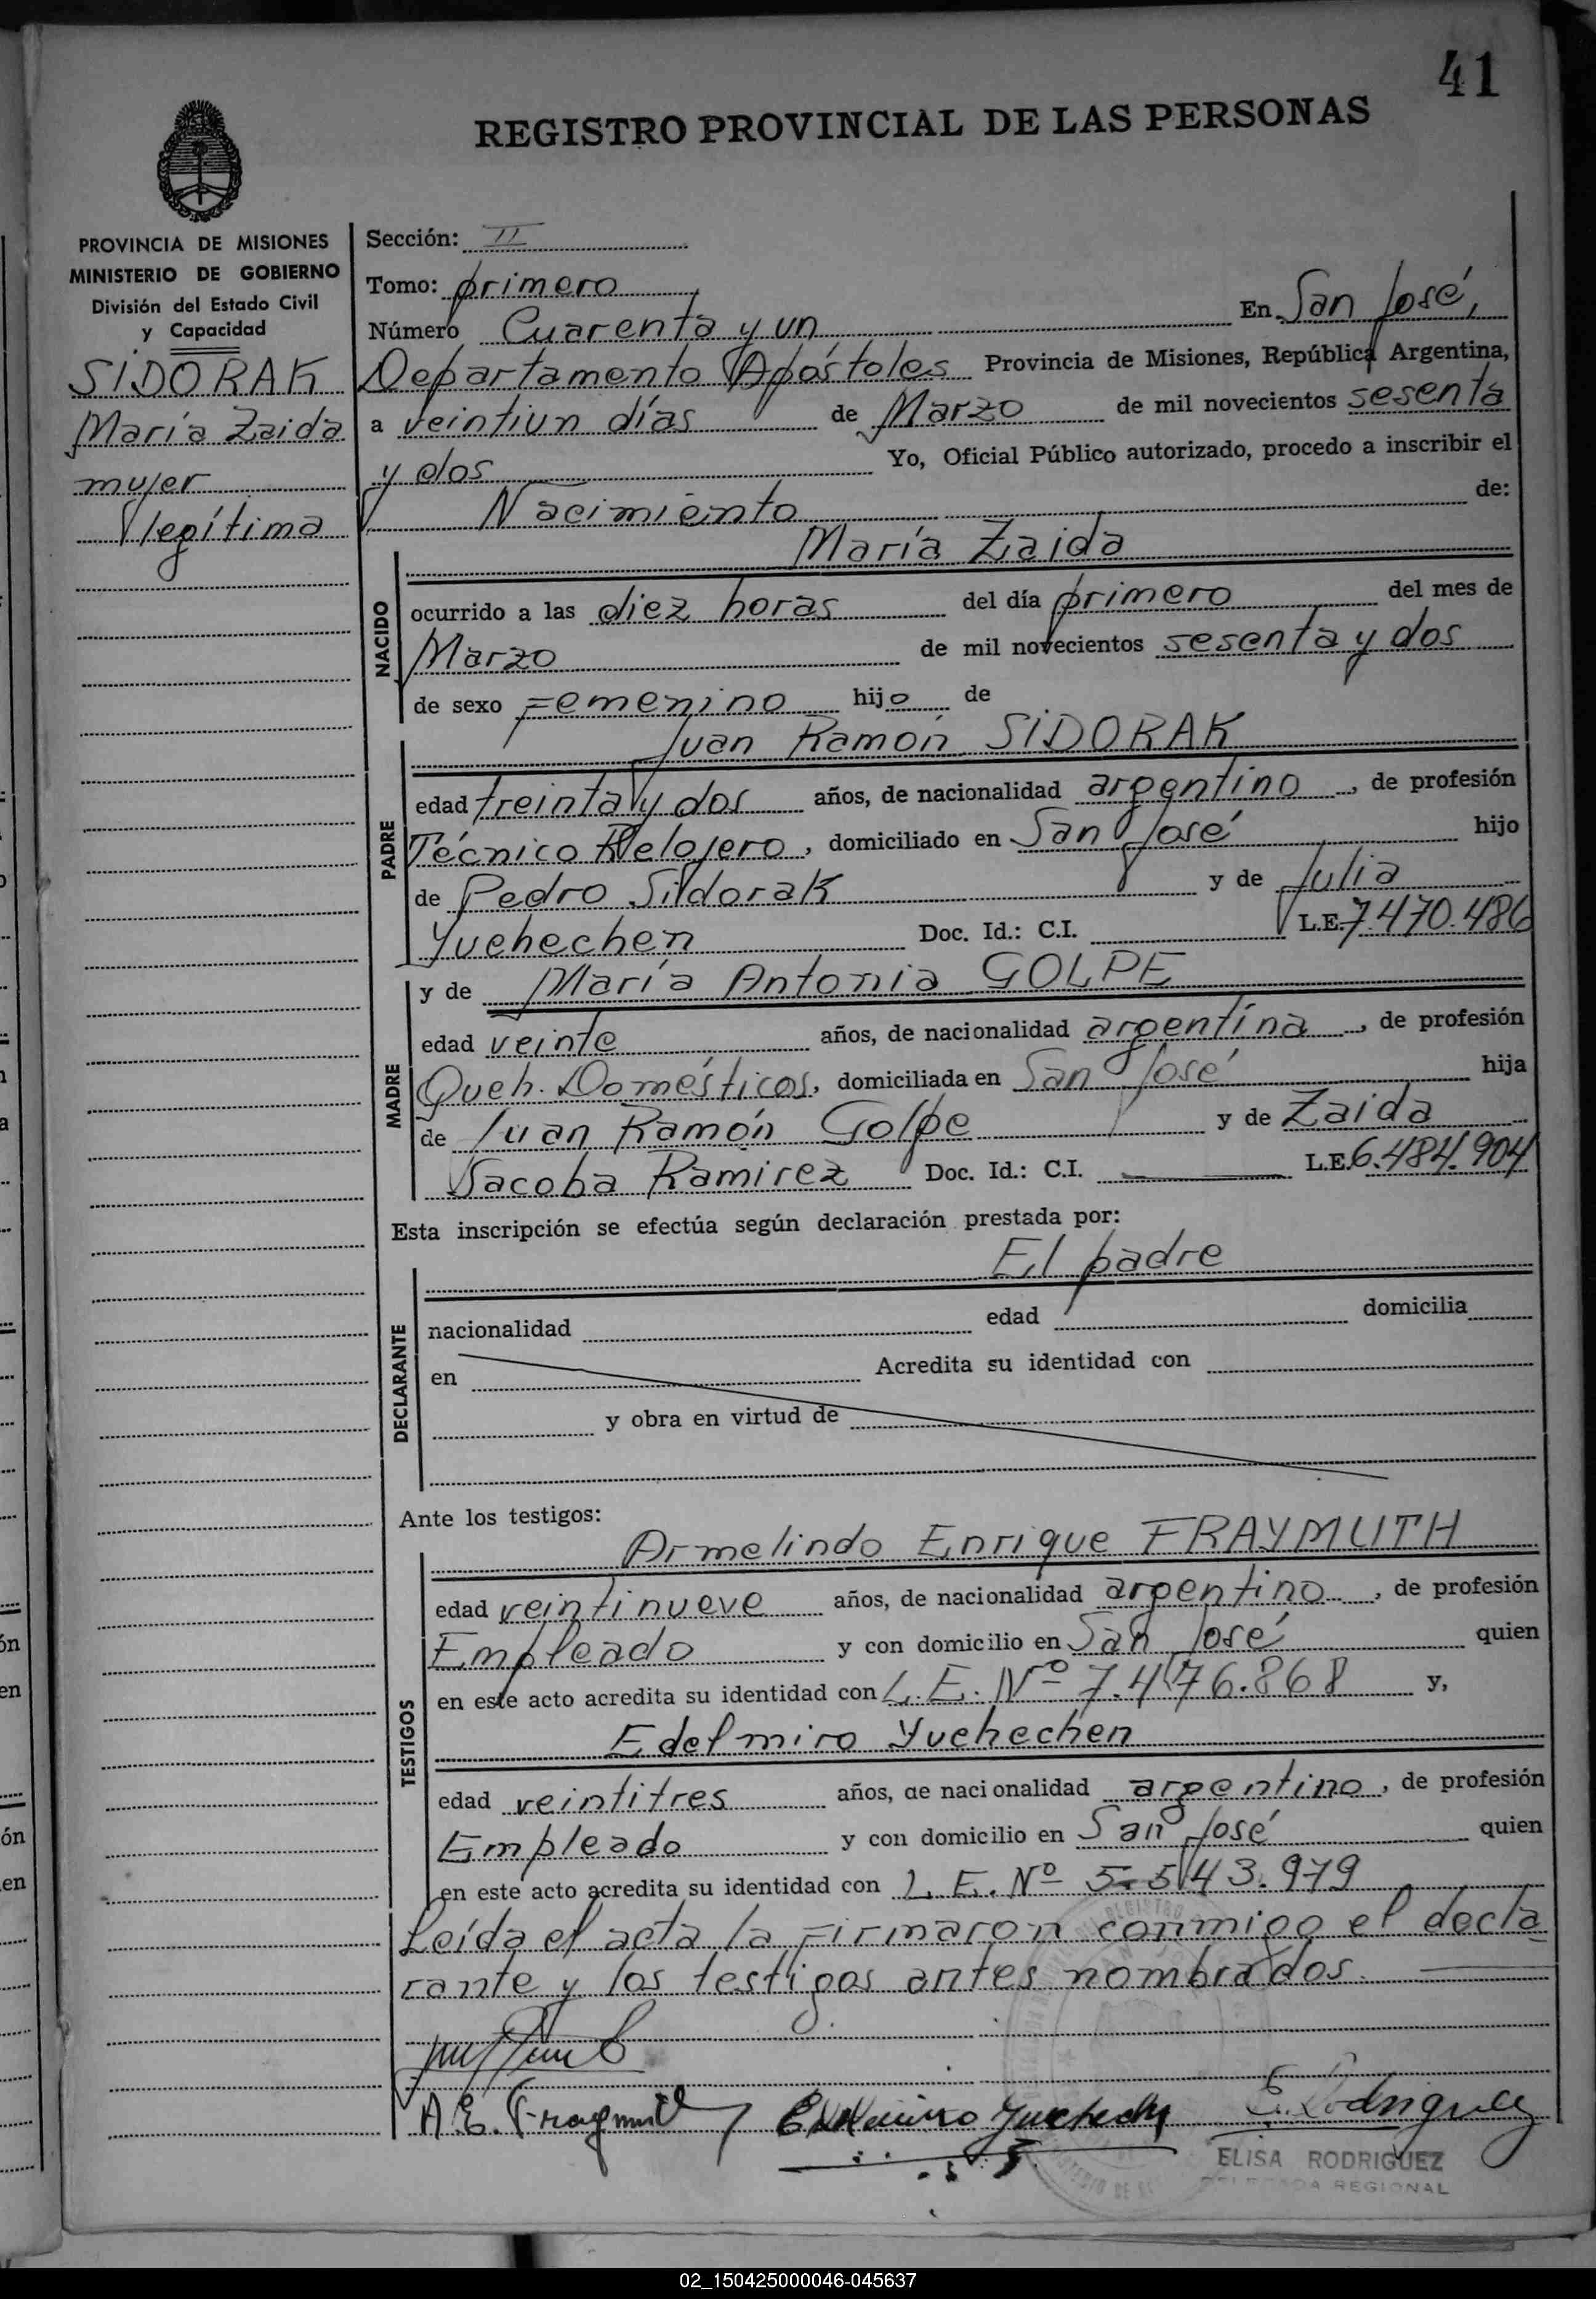 41
REGISTRO PROVINCIAL DE LAS PERSONAS
PROVINCIA DE MISIONES
MINISTERIO DE GOBIERNO
División del Estado Civil
y Capacidad
SIDORAK
María Zaida
mujer
legítima
Sección: II
Tomo: primero
Número Cuarenta y un En San José,
Departamento Apóstoles Provincia de Misiones, República Argentina,
a veintiun días de Marzo de mil novecientos sesenta
y dos Yo, Oficial Público autorizado, procedo a inscribir el
Nacimiento de:
María Zaida
NACIDO
ocurrido a las diez horas del día primero del mes de
Marzo de mil novecientos sesenta y dos
de sexo Femenino hijo de
Juan Ramón SIDORAK
PADRE
edad treinta y dos años, de nacionalidad argentino, de profesión
Técnico Relojero, domiciliado en San José hijo
de Pedro Sidorak y de Julia
Yuehechen Doc. Id.: C.I. L.E. 7.470.486
y de María Antonia GOLPE
MADRE
edad veinte años, de nacionalidad argentina, de profesión
Queh. Domésticos, domiciliada en San José hija
de Juan Ramón Golpe y de Zaida
Jacoba Ramirez Doc. Id.: C.I. L.E. 6.484.904
Esta inscripción se efectúa según declaración prestada por:
El padre
DECLARANTE
nacionalidad edad domicilia
en Acredita su identidad con
y obra en virtud de
Ante los testigos:
Armelindo Enrique FRAYMUTH
TESTIGOS
edad veintinueve años, de nacionalidad argentino, de profesión
Empleado y con domicilio en San José quien
en este acto acredita su identidad con L.E. Nº 7.476.868 y,
Edelmiro Yuehechen
edad veintitres años, de nacionalidad argentino, de profesión
Empleado y con domicilio en San José quien
en este acto acredita su identidad con L.E. Nº 5.543.979
Leída el acta la Firmaron conmigo el decla
rante y los testigos antes nombrados.
A.E. Fraymuth Edelmiro Yuehechen E. Rodriguez
ELISA RODRIGUEZ
DELEGADA REGIONAL
02_150425000046-045637